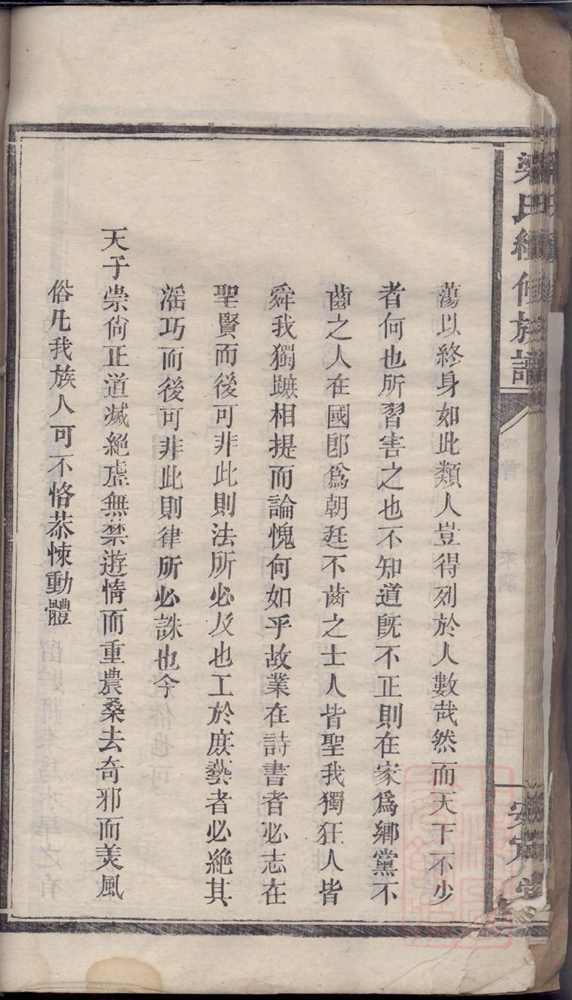 梁氏續修族譜
蕩以終身如此類人豈得列於人數哉然而天下不少
者何也所習害之也不知道既不正則在家爲鄉黨不
齒之人在國卽爲朝廷不齒之士人皆聖我獨狂人皆
舜我獨蹠相提而論愧何如乎故業在詩書者必志在
聖賢而後可非此則法所必及也工於庶藝者必絕其
滛巧而後可非此則律所必誅也今
天子崇尙正道滅絕虛無禁遊惰而重農桑去奇邪而美風
俗凡我族人可不恪恭悚動體